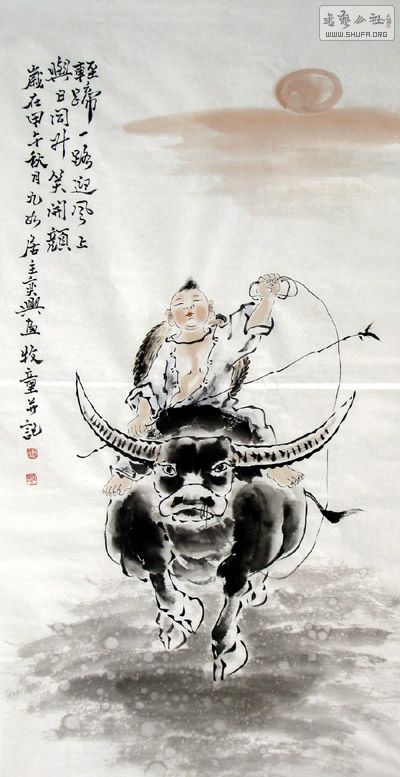 輕蹄一路迎風上
與日同升笑開顏
歲在甲午秋月九如居主奕興画牧童并記
書藝公社
WWW.SHUFA.ORG